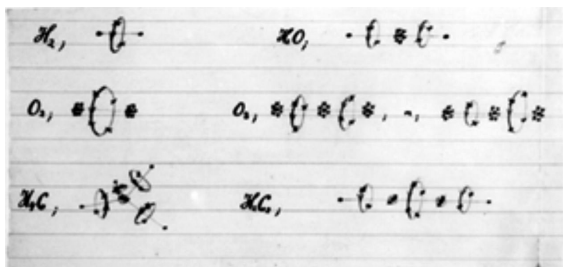 H₂, HO,
O₂, O₃,
H₄C, H₂C₂,